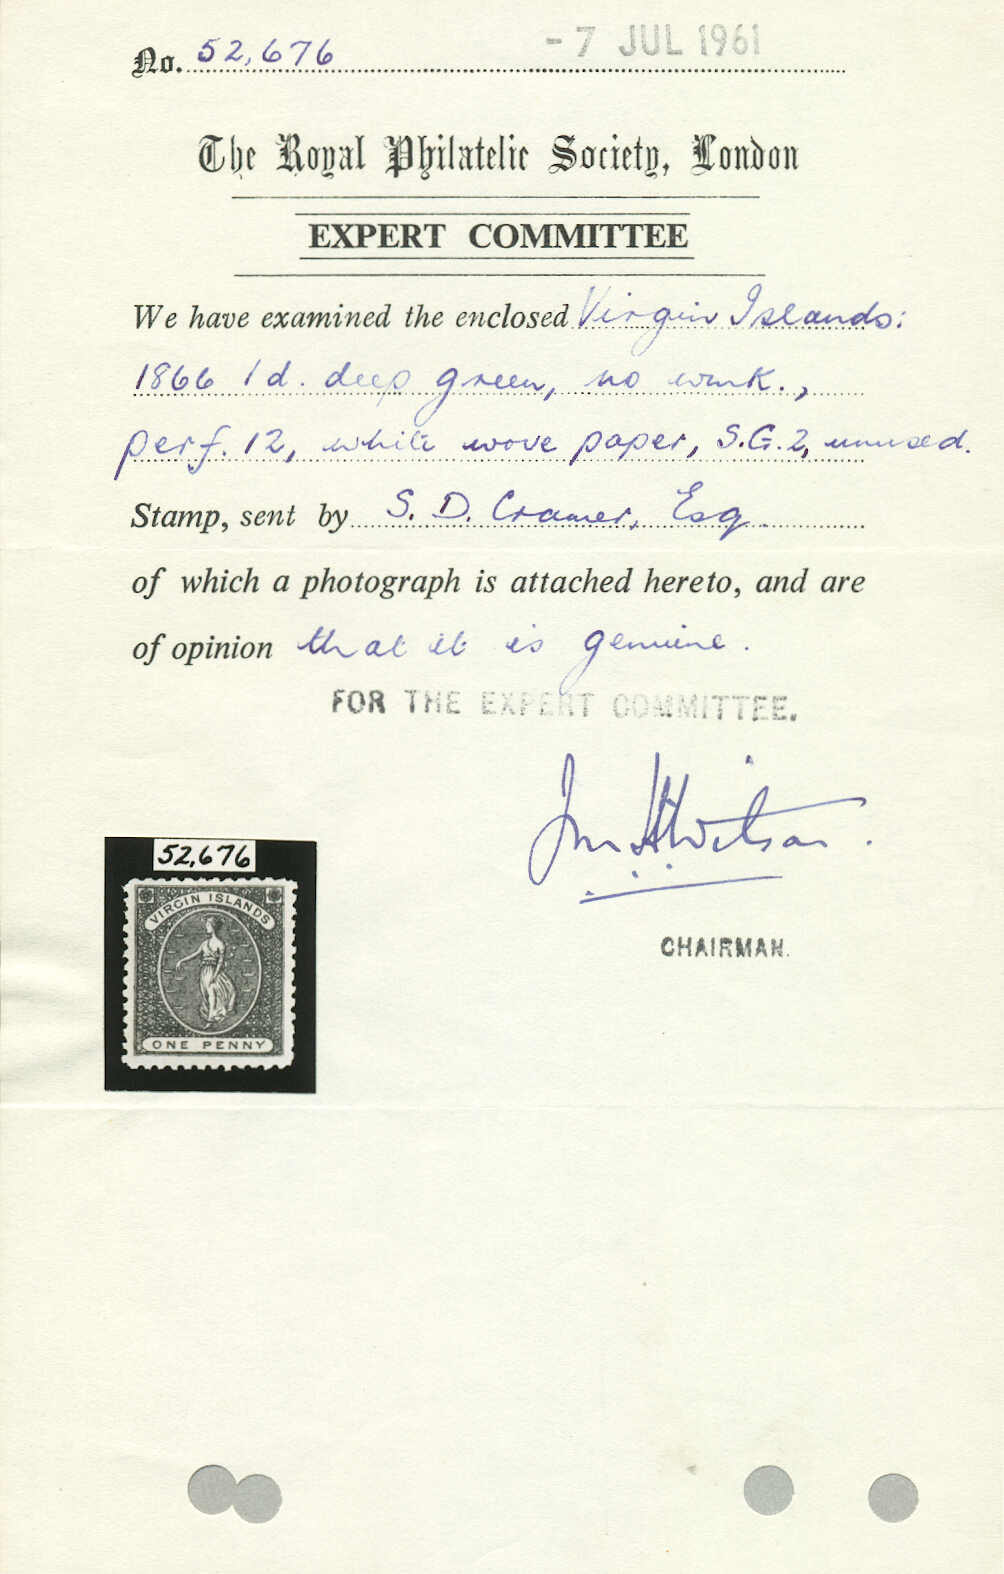 No. 52,676
- 7 JUL 1961
The Royal Philatelic Society, London
EXPERT COMMITTEE
We have examined the enclosed Virgin Islands:
1866 1d. deep green, no wmk.,
perf. 12, white wove paper, S.G.2, unused.
Stamp, sent by S. D. Cramer, Esq.
of which a photograph is attached hereto, and are
of opinion that it is genuine.
FOR THE EXPERT COMMITTEE.
Jn H Wilson.
CHAIRMAN.
52,676
VIRGIN ISLANDS
ONE PENNY